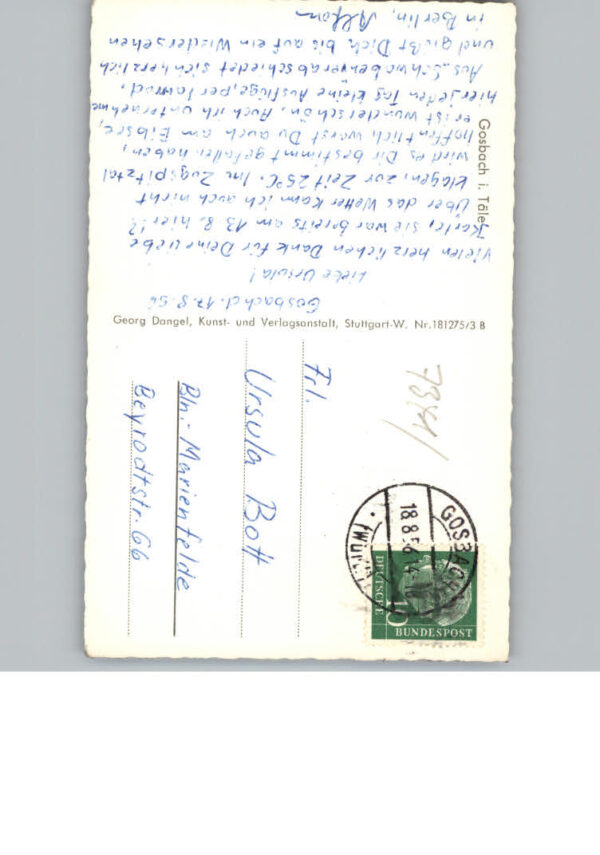 Gosbach i. Täle
Gosbach d. 17.8.56
Liebe Ursula!
Vielen herzlichen Dank für Deine liebe
Karte, sie war bereits am 13.8. hier!!
Über das Wetter kann ich auch nicht
klagen, zur Zeit 25°C. Im Zugspitztal
wird es Dir bestimmt gefallen haben,
hoffentlich warst Du auch am Eibsee,
er ist wunderschön. Auch ich unternehme
hier jeden Tag kleine Ausflüge, per Fahrrad.
Aus „Schwaben verabschiedet sich herzlich
und grüßt Dich bis auf ein Wiedersehen
in Berlin, Alfon
Georg Dangel, Kunst- und Verlagsanstalt, Stuttgart-W. Nr.181275/3 B
Frl.
Ursula Bott
Bln.-Marienfelde
Beyrodtstr. 66
GOSBACH
18.8.56.14
DEUTSCHE
BUNDESPOST
10